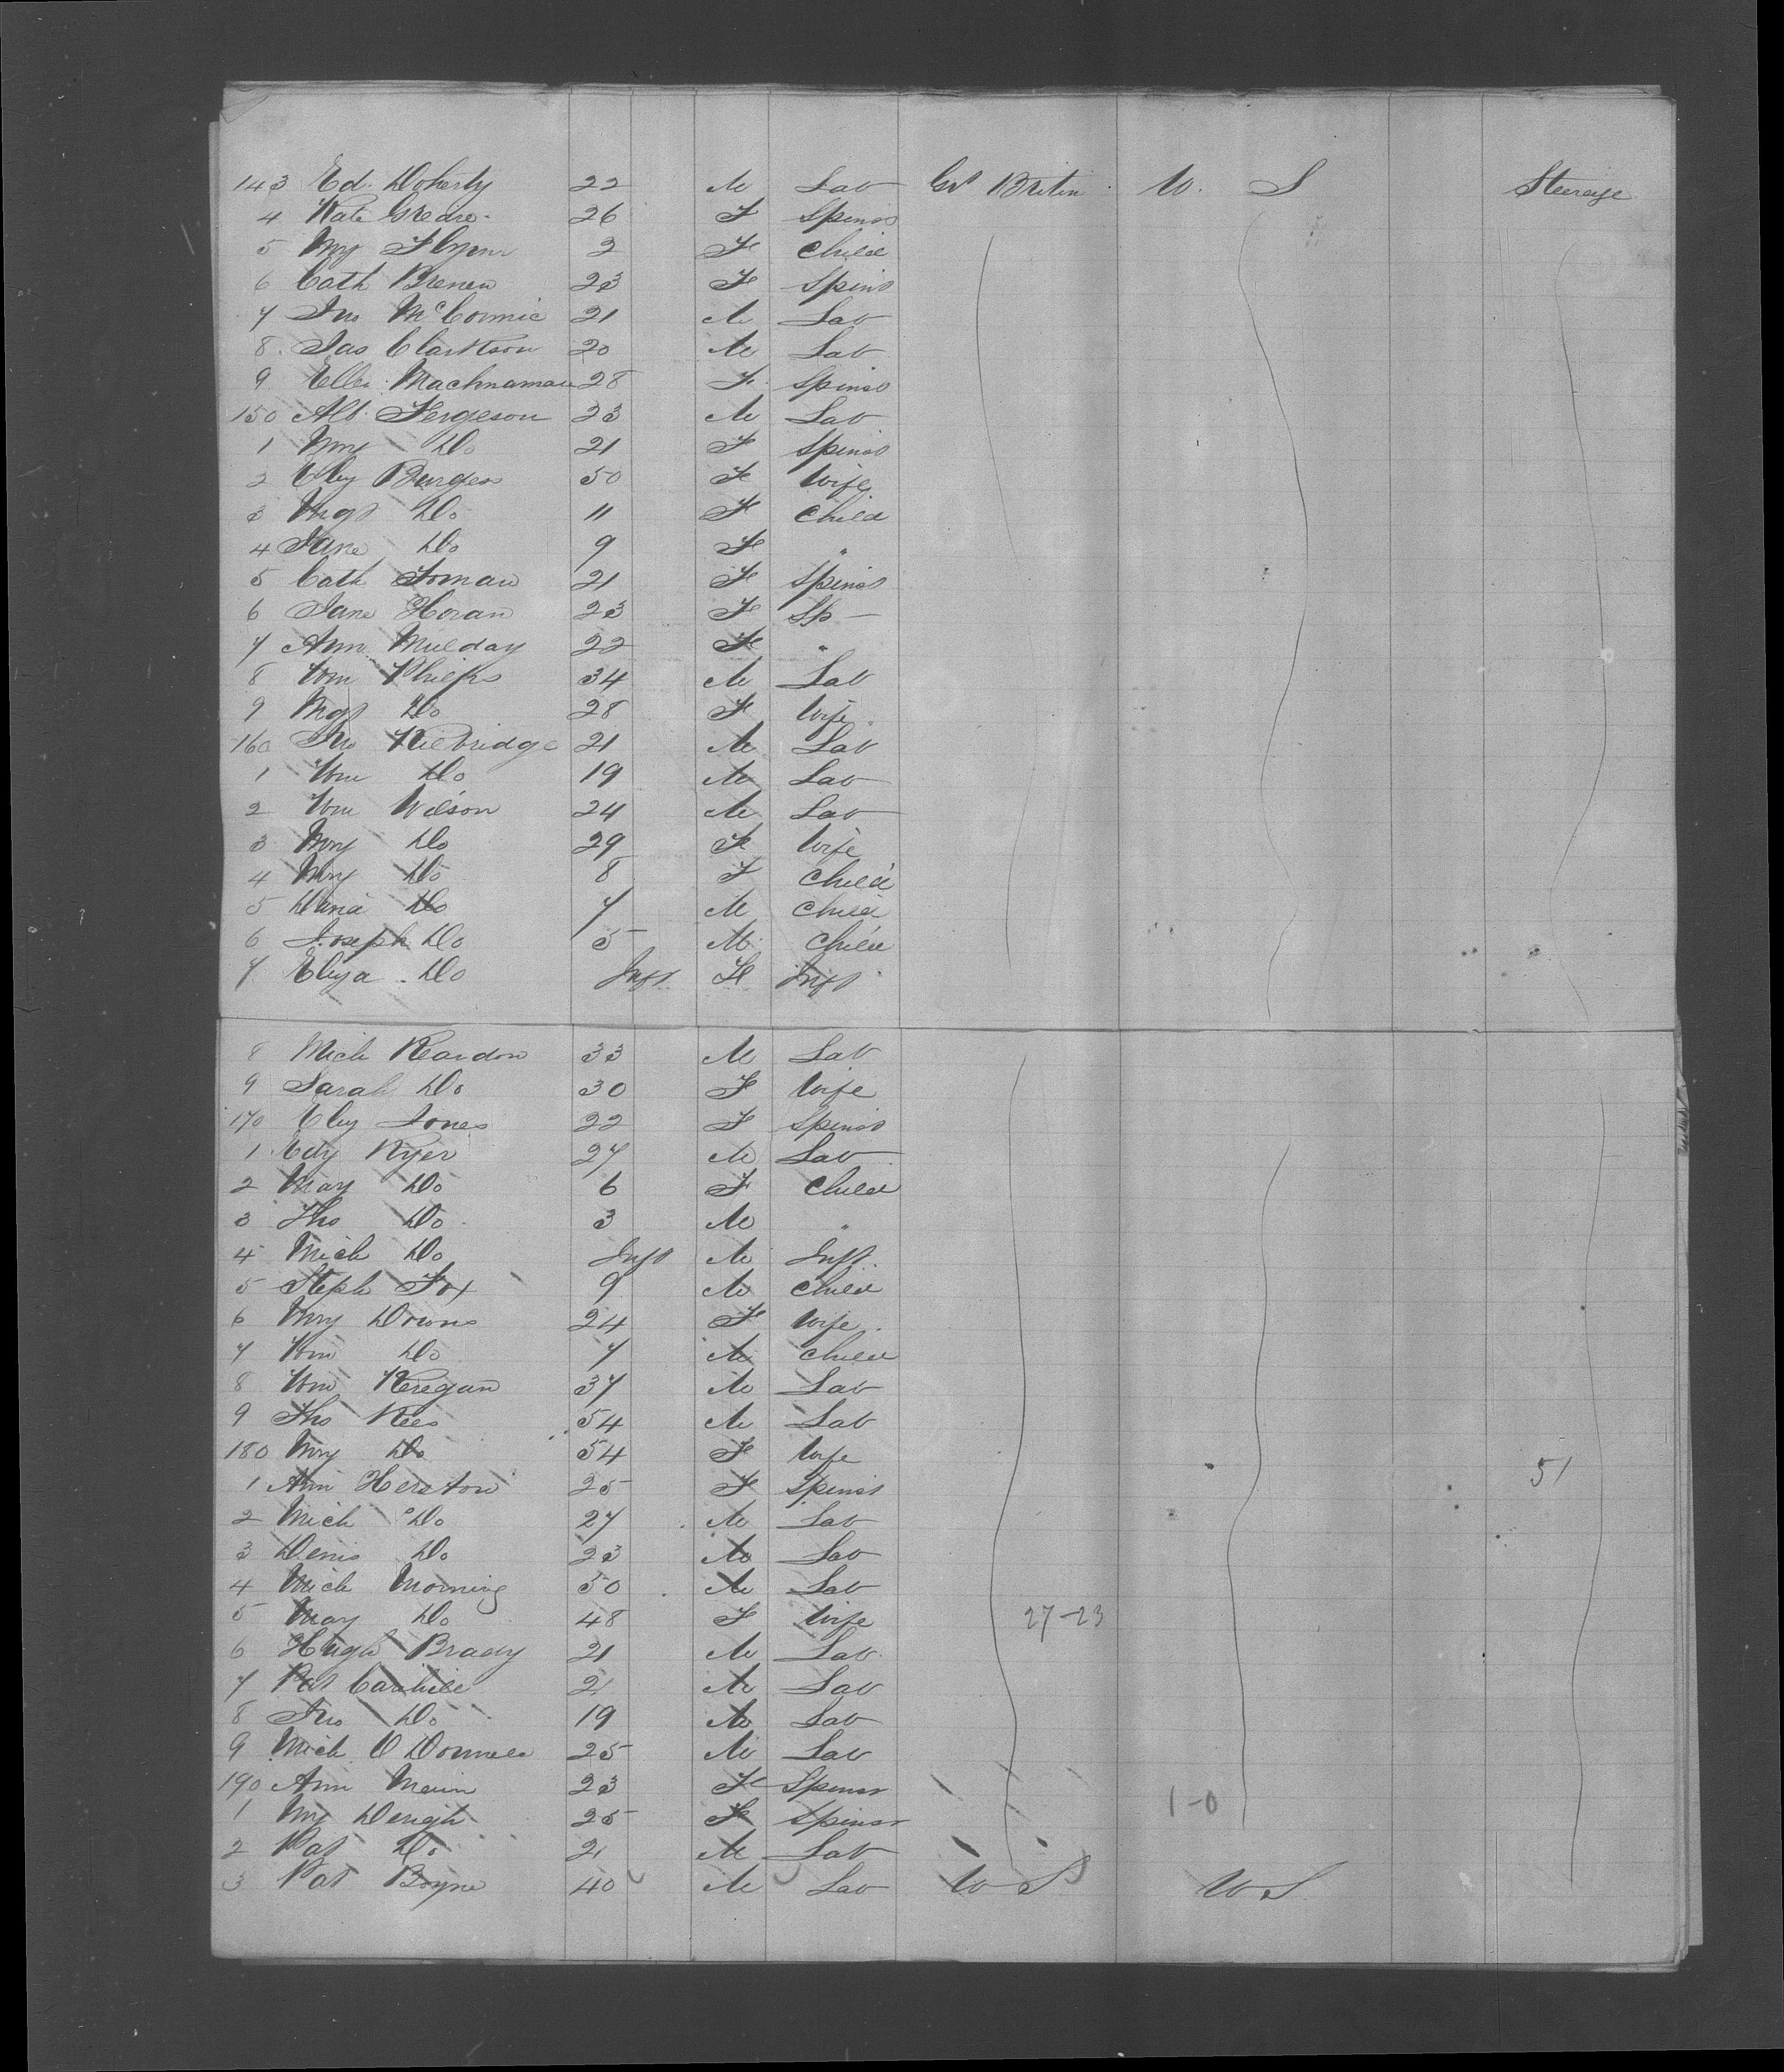 143 Ed. Doherty 22 M Lab Gt Britin U. S Steerage
4 Kate 26 F Spinst
5 My Flynn 2 F Child
6 Cath Brenen 23 F Spinst
7 Jno McCormic 21 M Lab
8 Jas Clarkson 20 M Lab
9 Ellen Machnaman 28 F Spinst
150 Alb. Fergeson 23 M Lab
1 My Do 21 F Spinst
2 Eliz Burges 50 F Wife
3 Mgt Do 11 F Child
4 Jane Do 9 F "
5 Cath 21 F Spinst
6 Jane Horan 23 F Sp —
7 Ann Mulday 22 F "
8 Wm Philips 34 M Lab
9 Mgt Do 28 F Wife
160 Jno Kilbridge 21 M Lab
1 Wm Do 19 M Lab
2 Wm Wilson 24 M Lab
3 My Do 29 F Wife
4 My Do 8 F Child
5 David Do 7 M Child
6 Joseph Do 5 M Child
7 Eliza Do Inft F Inft
8 Mich Reardon 33 M Lab
9 Sarah Do 30 F Wife
170 Eliz Jones 22 F Spinst
1 Edy Ryer 27 M Lab
2 May Do 6 F Child
3 Tho Do 3 M "
4 Mich Do Inft M Inft
5 Steph Fox 9 M Child
6 My Downs 24 F Wife
7 Wm Do 7 M Child
8 Wm Keregan 37 M Lab
9 Tho Rees 54 M Lab
180 My Do 54 F Wife 51
1 Ann 25 F Spinst
2 Mich Do 27 M Lab
3 Denis Do 23 M Lab
4 Mich Morning 50 M Lab
5 May Do 48 F Wife 27-23
6 Hugh Brady 21 M Lab
7 Pat 21 M Lab
8 Jno Do 19 M Lab
9 Mich O Donnell 25 M Lab
190 Ann 23 F Spinst
1 My 25 F Spinst 1-0
2 Pat Do 21 M Lab
3 Pat Boyne 40 M Lab U S U S